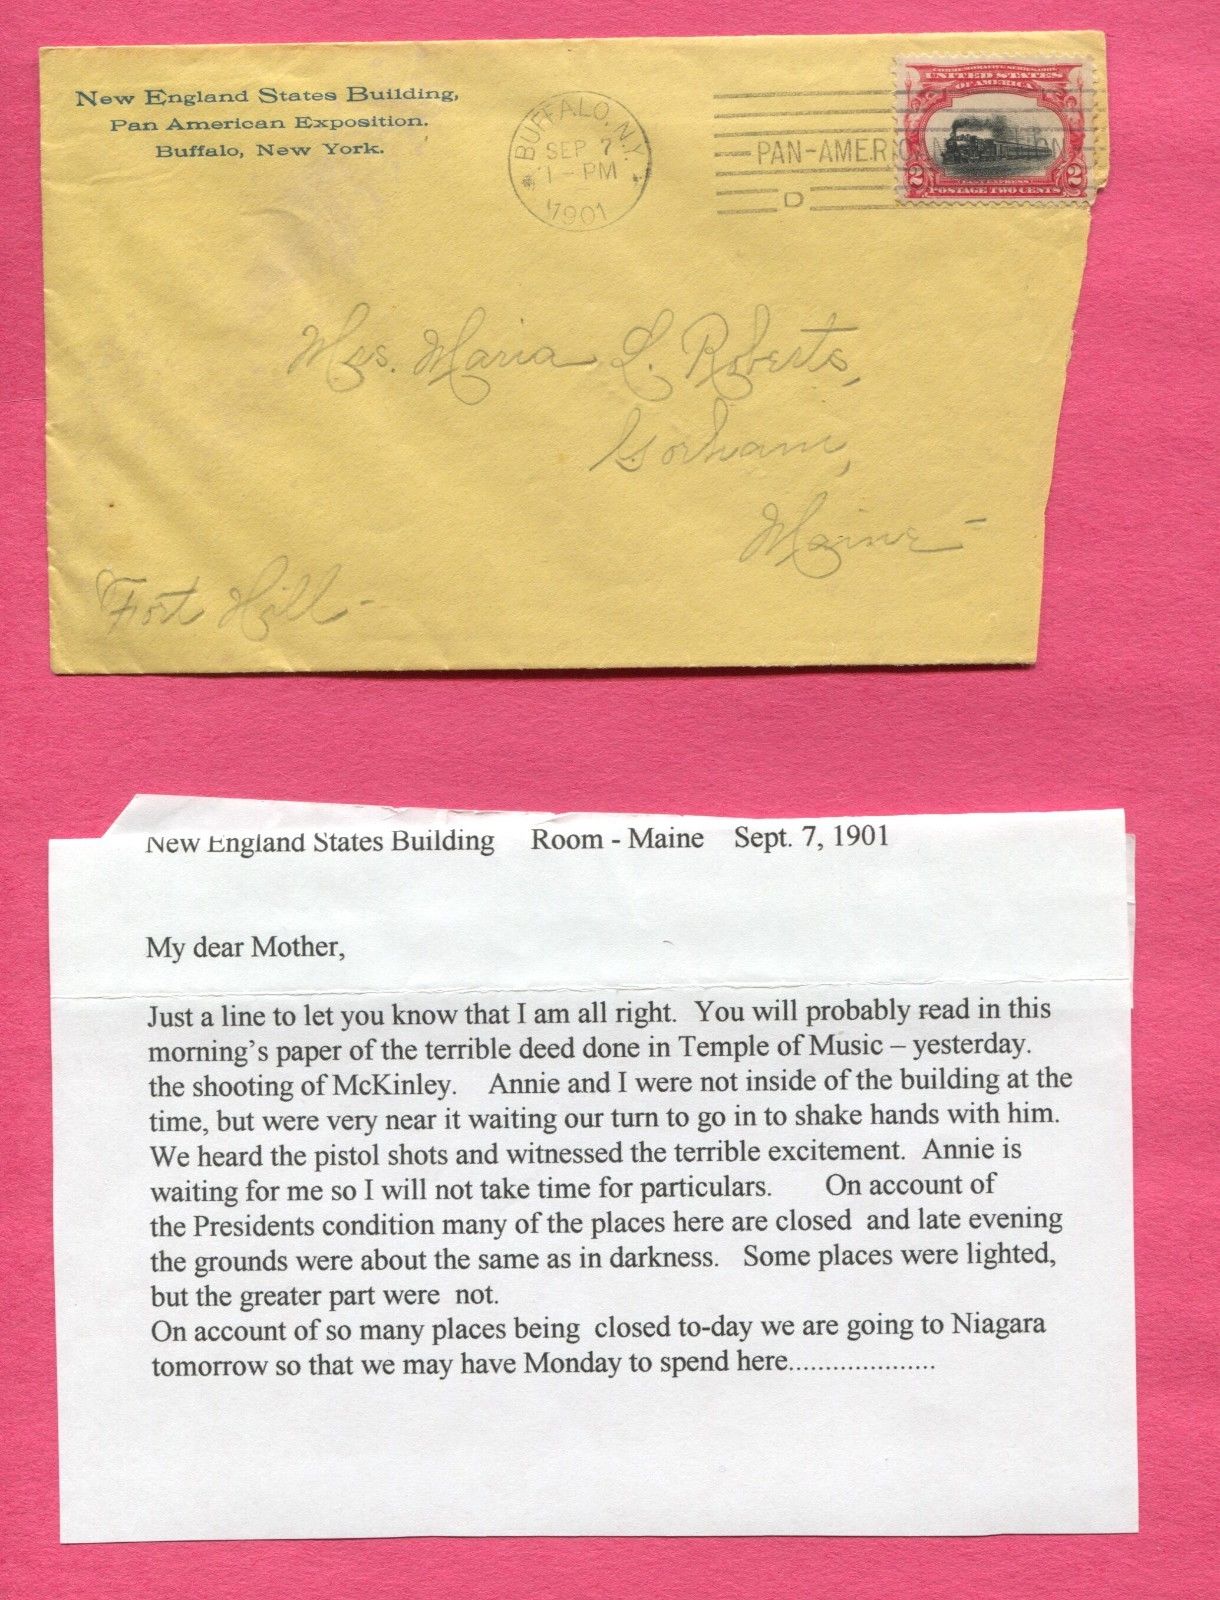 New England States Building,
Pan American Exposition.
Buffalo, New York.
BUFFALO, N.Y.
SEP 7
1 - PM
1901
PAN-AMERICAN
D
UNITED STATES
OF AMERICA
2 2
POSTAGE TWO CENTS
Mrs. Maria L. Roberts,
Gorham,
Maine -
Fort Hill -
New England States Building Room - Maine Sept. 7, 1901
My dear Mother,
Just a line to let you know that I am all right. You will probably read in this
morning's paper of the terrible deed done in Temple of Music – yesterday.
the shooting of McKinley. Annie and I were not inside of the building at the
time, but were very near it waiting our turn to go in to shake hands with him.
We heard the pistol shots and witnessed the terrible excitement. Annie is
waiting for me so I will not take time for particulars. On account of
the Presidents condition many of the places here are closed and late evening
the grounds were about the same as in darkness. Some places were lighted,
but the greater part were not.
On account of so many places being closed to-day we are going to Niagara
tomorrow so that we may have Monday to spend here....................